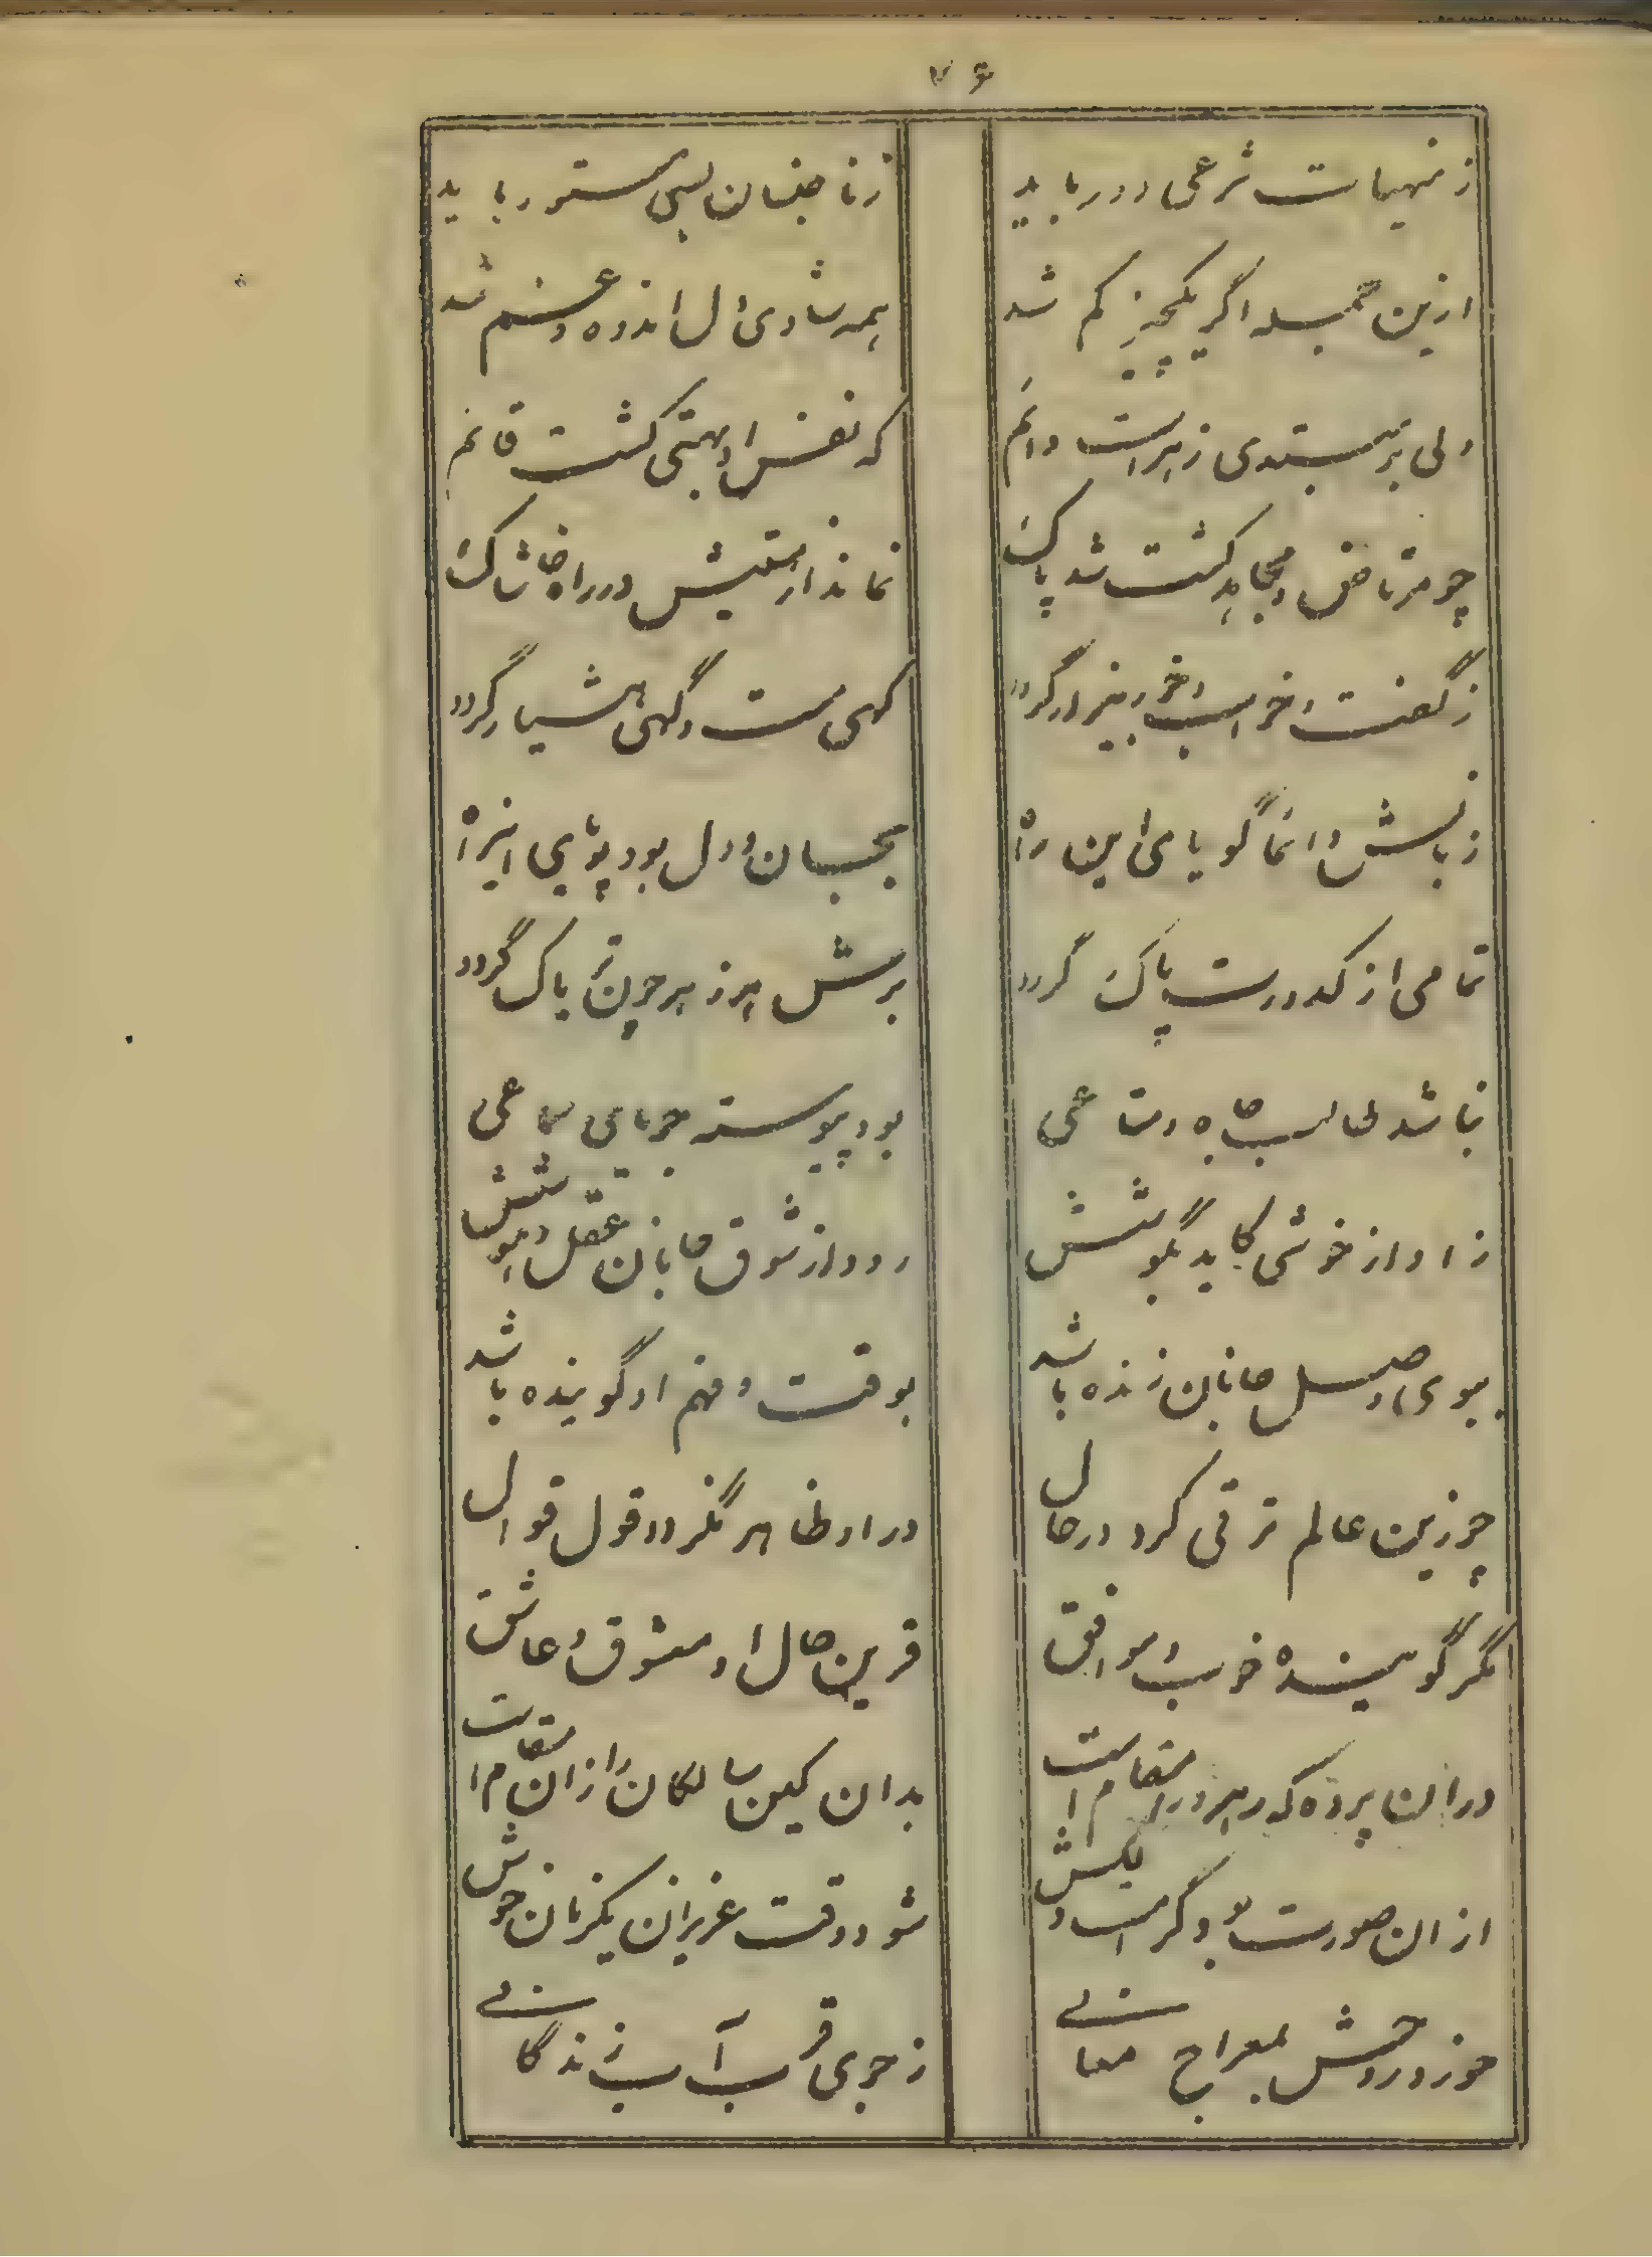 ۷۶
ز منهیات شرعی دور باید
ز ناجنسان بسی مستور باید
ازین جمله اگر یکچیز کم شد
همه شادی آل اندوه و غم شد
ولی بر مبتدی زهراست دائم
که نفس او بهستی گشت قائم
چو مرتاض و مجاهد گشت شد پاک
نماند از هستیش در راه خاشاک
ز گفت و خواب و خور بیزار گردد
گهی مست و گهی هشیار گردد
زبانش دانما گویا می این راه
بجان و دل بود پویای این راه
تمامی از کدورت پاک گردد
برش هر زهر چون تریاک گردد
نباشد طالب جاه و متاعی
بود پیوسته جویای سماعی
ز اواز خوشی کاید بگوشش
رود از شوق جانان عقل و هوشش
ببوی وصل جانان زنده باشد
بوقت و فهم او گوینده باشد
چو زین عالم ترقی کرد در حال
در او ظاهر نگردد قول قوال
مگر گوینده خوب و موافق
قرین حال او معشوق و عاشق
در ان پرده که رهرو در مقام است
بدان کین سالکان را زان مقامات
از ان صورت بود گر است و
شود وقت عزیزان یکزمان خوش
خورد روحش بمعراج معانی
ز جوی قرب آب زندگانی